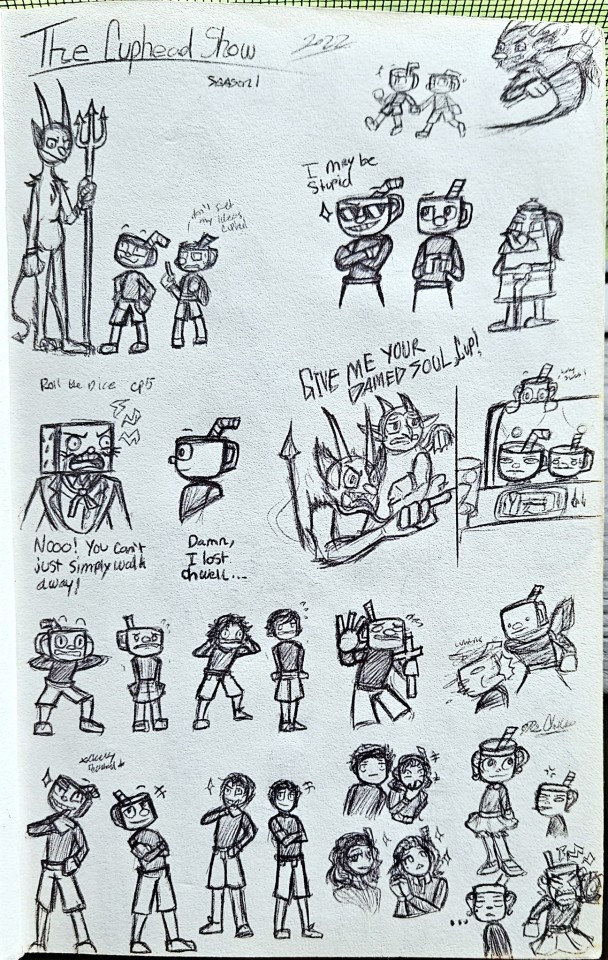 The Cuphead Show
2022
SEASON 1
I may be
Stupid
don't get
my
Roll the Dice cp5
GIVE ME YOUR
DAMED SOUL, Cup!
Nooo! You can't
just simply walk
away!
Damn,
I lost
ohwell...
...